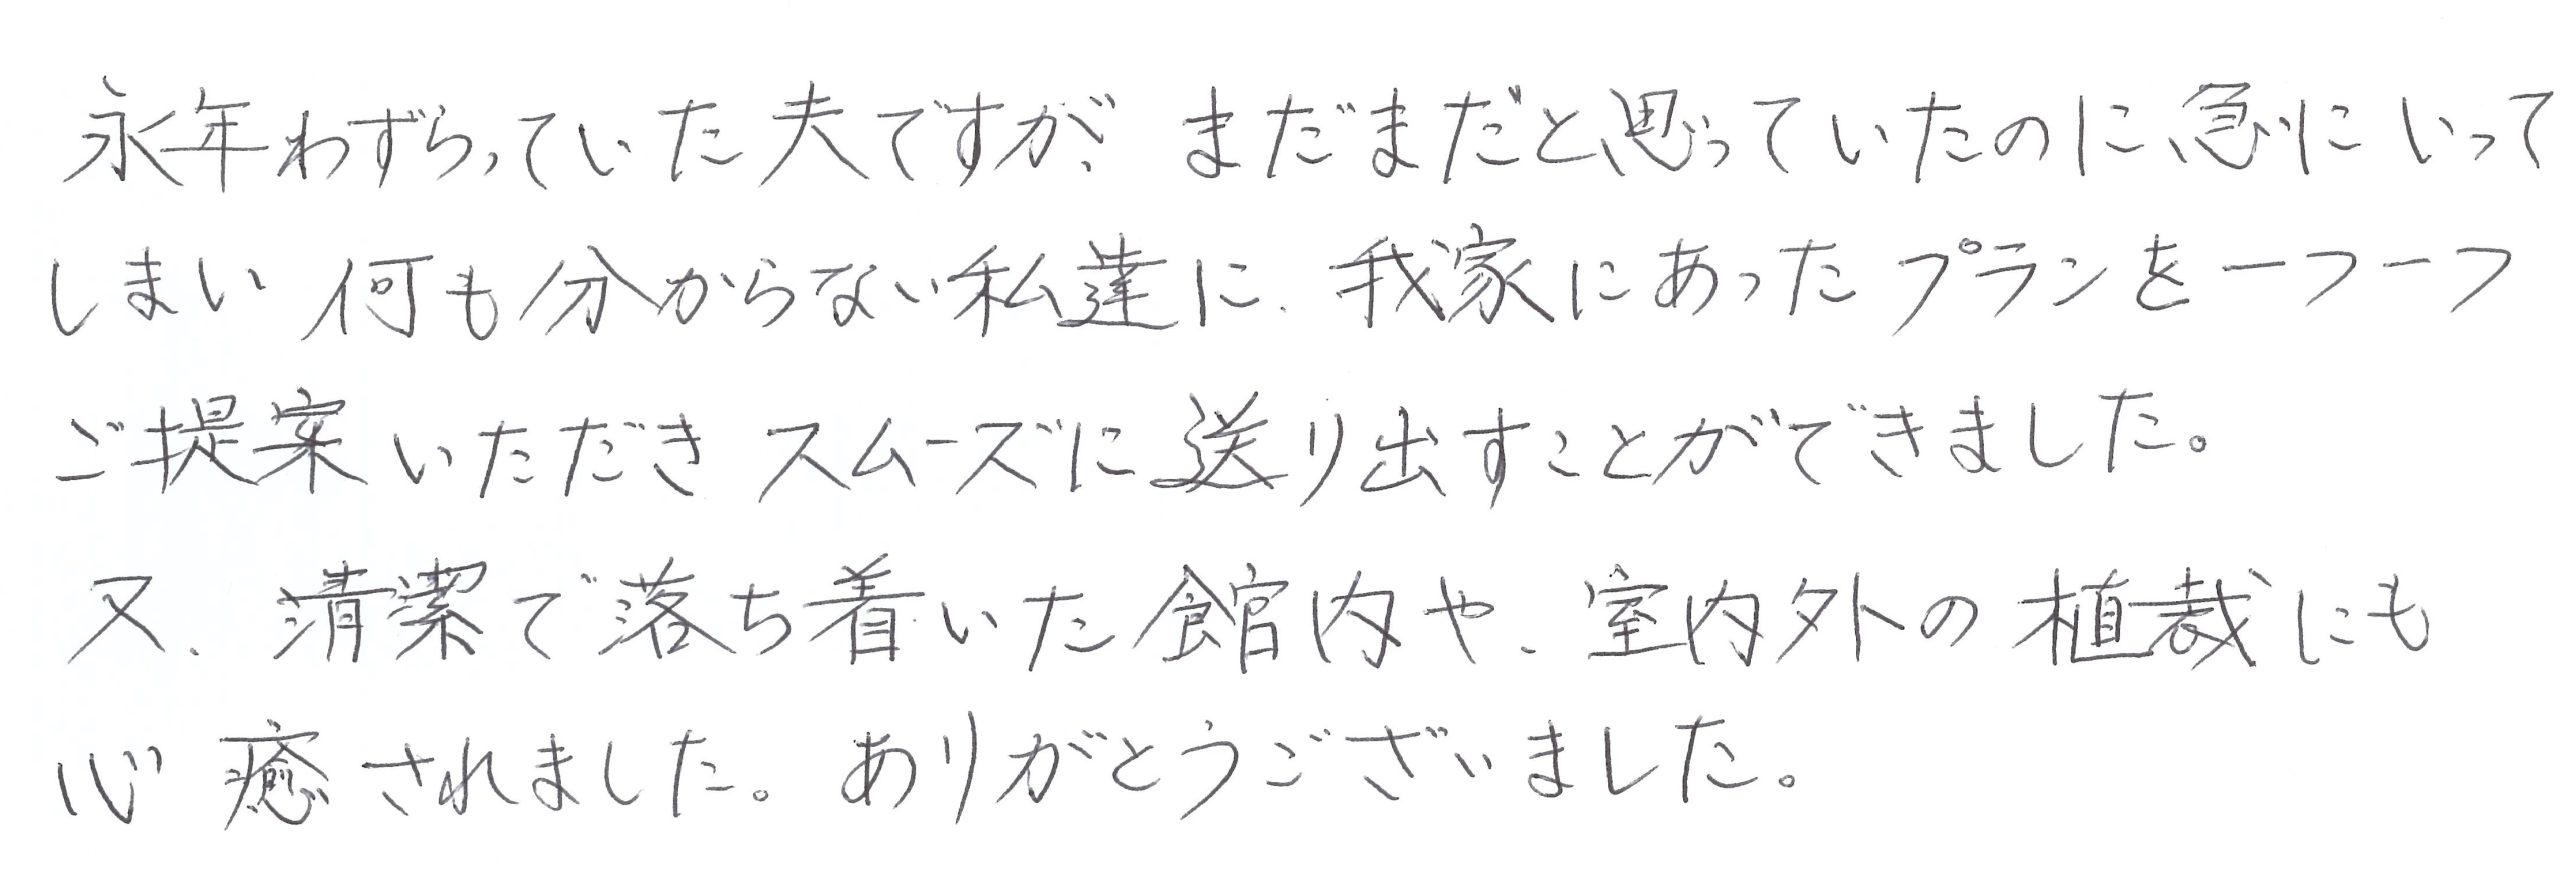 永年わずらっていた夫ですが、まだまだと思っていたのに、急にいって
しまい 何も分からない私達に、我家にあったプランを一つ一つ
ご提案いただき スムーズに送り出すことができました。
又、清潔で落ち着いた館内や、室内外の植裁にも
心癒されました。ありがとうございました。